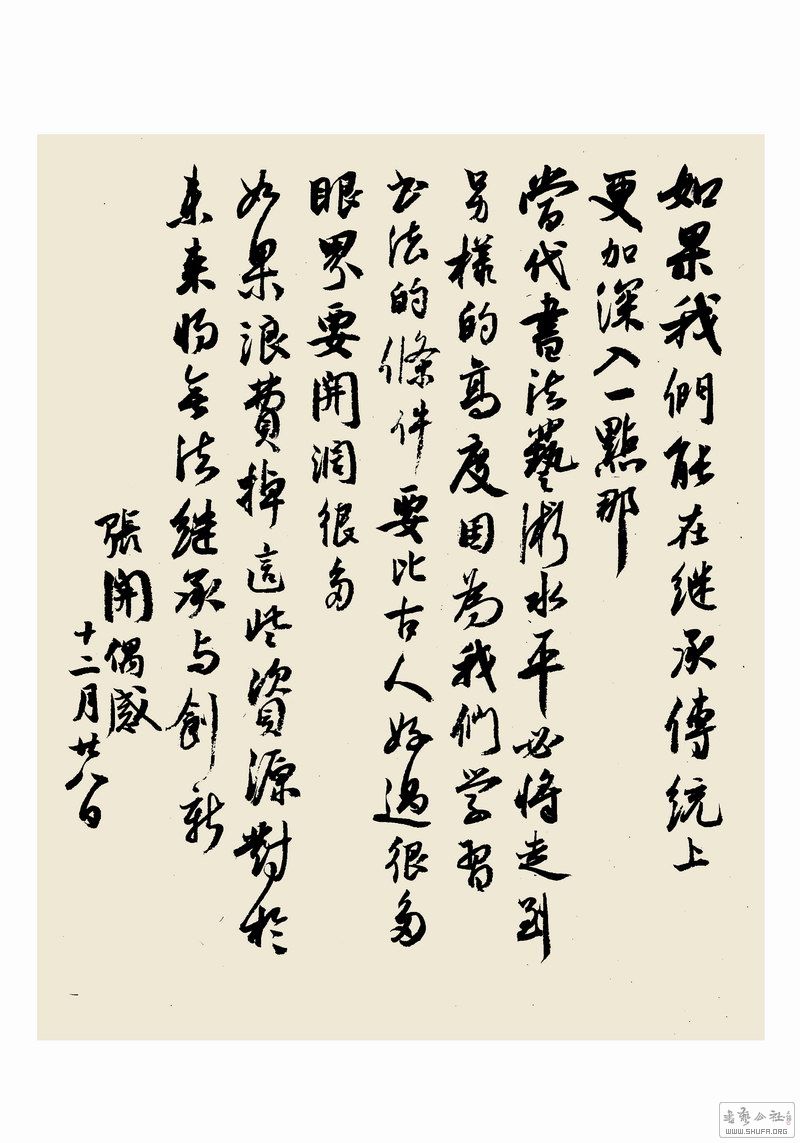 如果我們能在继承傳統上
更加深入一點那
當代書法藝術水平必将走到
另樣的高度因為我們学習
书法的條件要比古人好過很多
眼界要開濶很多
如果浪費掉這些資源對於
未来将無法继承与創新
張開偶感
十二月廿八日
書藝公社
WWW.SHUFA.ORG